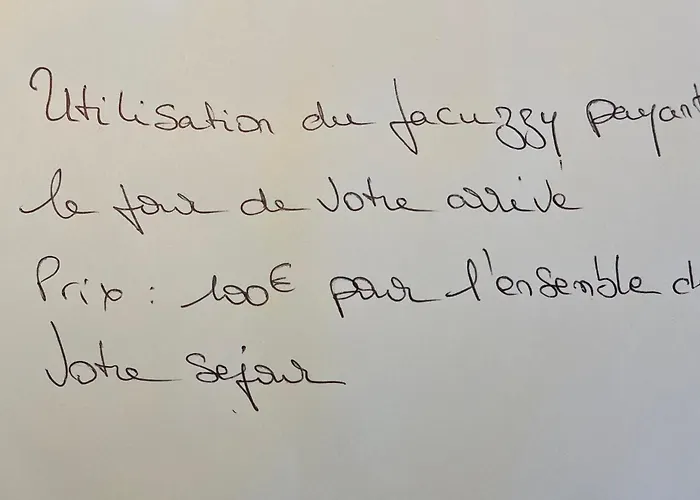 Utilisation du jacuzzy payant
le jour de votre arrivé
Prix : 100€ pour l'ensemble d
votre sejour